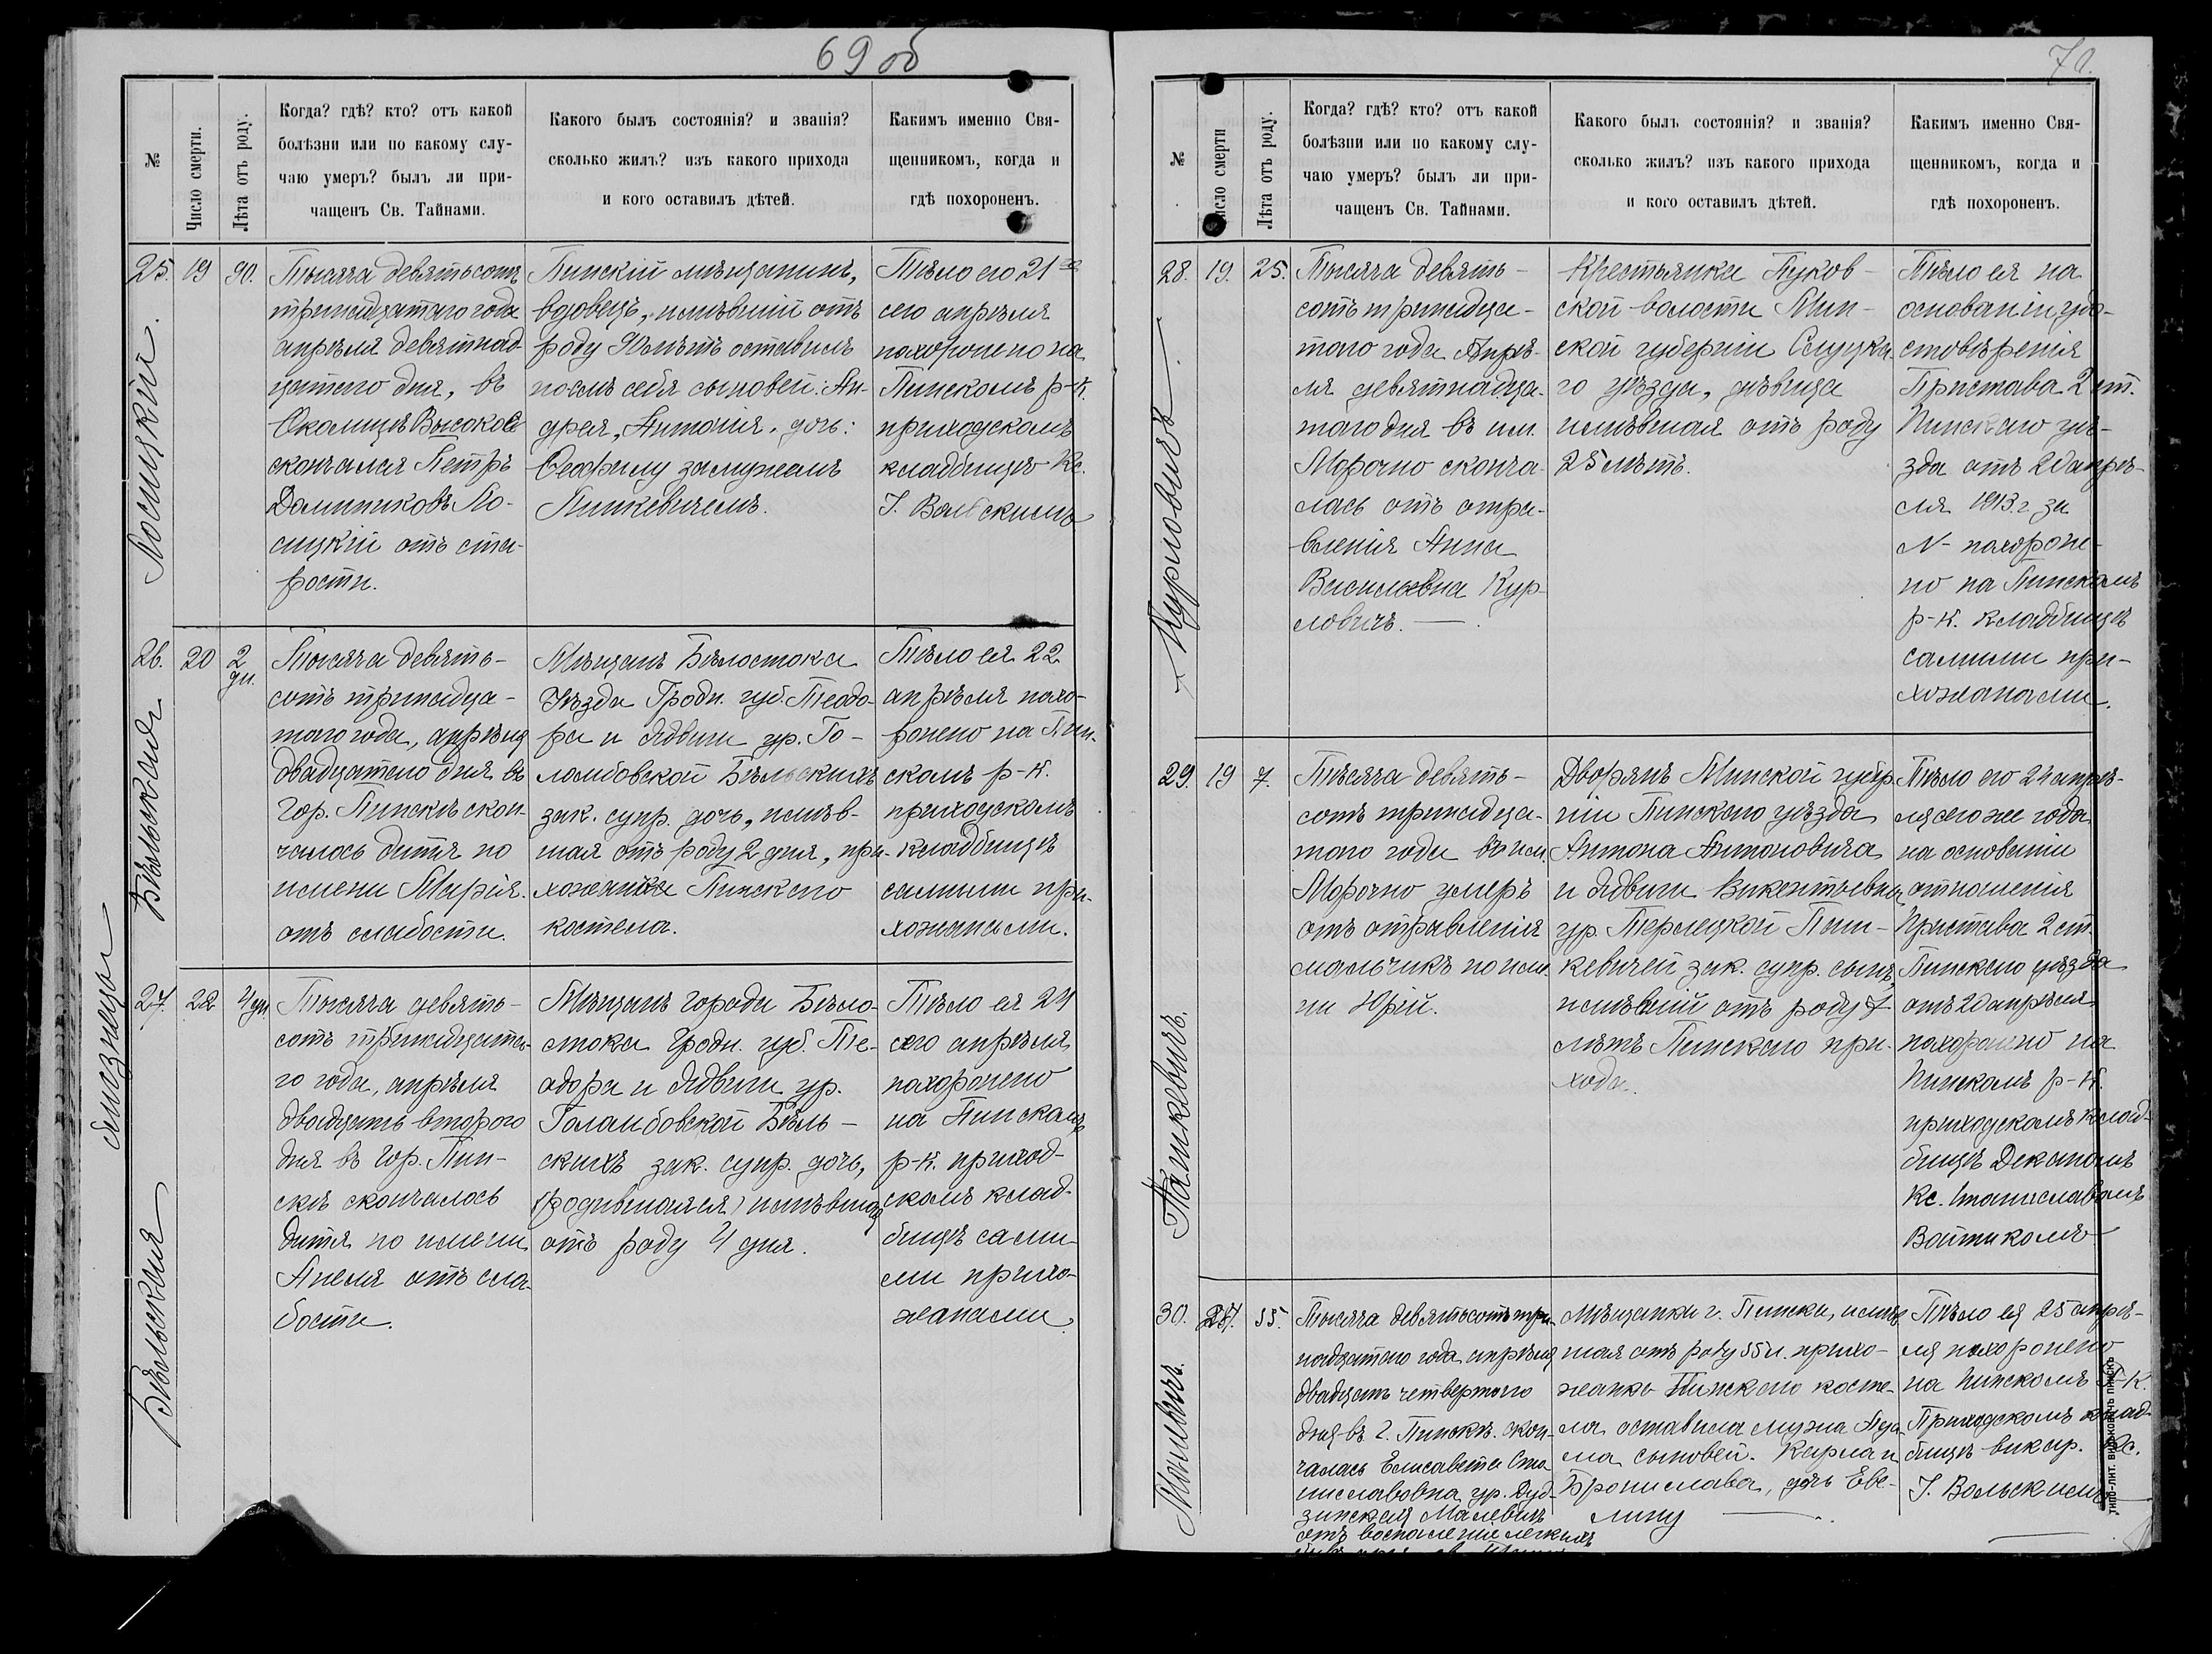 69 об
№
Число смерти.
Лѣта отъ роду.
Когда? гдѣ? кто? отъ какой
болѣзни или по какому слу-
чаю умеръ? былъ ли при-
чащенъ Св. Тайнами.
Какого былъ состоянія? и званія?
сколько жилъ? изъ какого прихода
и кого оставилъ дѣтей.
Какимъ именно Свя-
щенникомъ, когда и
гдѣ похороненъ.
25.
19
90.
Лосицкій.
Тысяча девятьсотъ
тринадцатаго года
апрѣля девятнад-
цатаго дня, въ
Околицѣ Высокое
скончался Петръ
Доминиковъ Ло-
сицкій отъ ста-
рости.
Пинскій мѣщанинъ,
вдовецъ, имѣвшій отъ
роду 90 лѣтъ оставилъ
послѣ себя сыновей: Ан-
дрея, Антонія, дочь:
Теофилу замужемъ
Пинкевичемъ.
Тѣло его 21 го
сего апрѣля
похоронено на
Пинскомъ р-к.
приходскомъ
кладбищѣ Кс.
І. Вольскимъ
26.
20
2
дн.
Бѣльская
Тысяча девять-
сотъ тринадца-
таго года, апрѣля
двадцатаго дня въ
гор. Пинскѣ скон-
чалось дитя по
имени Марія.
отъ слабости.
Мѣщанъ Бѣлостока
Уѣзда Гродн. губ. Теодо-
ра и Ядвиги ур. Го-
ломбовской Бѣльскихъ
зак. супр. дочь, имѣв-
шая отъ роду 2 дня, при-
хожанка Пинскаго
костела.
Тѣло ея 22
апрѣля похо-
ронено на Пин-
скомъ р-к.
приходскомъ
кладбищѣ
самими при-
хожанами.
близнецы
27.
22
4 дн.
Бѣльская
Тысяча девять-
сотъ тринадцата-
го года, апрѣля
двадцать втораго
дня въ гор. Пин-
скѣ скончалось
дитя по имени
Анеля отъ сла-
бости.
Мѣщанъ города Бѣло-
стока Гродн. губ. Те-
одора и Ядвиги ур.
Голомбовской Бѣль-
скихъ зак. супр. дочь,
(родившаяся) имѣвшая
отъ роду 4 дня.
Тѣло ея 24
сего апрѣля
похоронено
на Пинскомъ
р-к. приход-
скомъ клад-
бищѣ сами-
ми прихо-
жанами.
70.
№
Число смерти
Лѣта отъ роду.
Когда? гдѣ? кто? отъ какой
болѣзни или по какому слу-
чаю умеръ? былъ ли при-
чащенъ Св. Тайнами.
Какого былъ состоянія? и званія?
сколько жилъ? изъ какого прихода
и кого оставилъ дѣтей.
Какимъ именно Свя-
щенникомъ, когда и
гдѣ похороненъ.
28.
19.
25.
Курловичъ
Тысяча девять-
сотъ тринадца-
таго года Апрѣ-
ля девятнадца-
таго дня въ им.
Морочно сконча-
лась отъ отра-
вленія Анна
Васильевна Кур-
ловичъ.
Крестьянка Пуков-
ской волости Мин-
ской губерніи Слуцка-
го уѣзда, дѣвица
имѣвшая отъ роду
25 лѣтъ.
Тѣло ея на
основаніи удо-
стовѣренія
Пристава 2 ст.
Пинскаго уѣ-
зда отъ 20 апрѣ-
ля 1913 г. за
N- похороне-
но на Пинскомъ
р-к. кладбищѣ
самими при-
хожанами.
29.
19
7.
Пашкевичъ.
Тысяча девять-
сотъ тринадца-
таго года въ им.
Морочно умеръ
отъ отравленія
мальчикъ по име-
ни Юрій.
Дворянъ Минской губер-
ніи Пинскаго уѣзда
Антона Антоновича
и Ядвиги Викентьевны
ур. Терлецкой Паш-
кевичей зак. супр. сынъ,
имѣвшій отъ роду 7
лѣтъ Пинскаго при-
хода.
Тѣло его 24 апрѣ-
ля сего же года
на основаніи
отношенія
Пристава 2 ст.
Пинскаго уѣзда
отъ 20 апрѣля
похоронено на
Пинскомъ р-к.
приходскомъ клад-
бищѣ Деканомъ
Кс. Станиславомъ
Войтикомъ
30.
24.
55.
Малевичъ.
Тысяча девятьсотъ три-
надцатаго года апрѣля
двадцать четвертаго
дня въ г. Пинскѣ скон-
чалась Елисавета Ста-
ниславовна ур. Дуд-
зинская Малевичъ
отъ воспаленія легкихъ
Мѣщанки г. Пинска, имѣв-
шая отъ роду 55 л. прихо-
жанка Пинскаго косте-
ла оставила мужа Ада-
ма сыновей. Карла и
Бронислава, дочь Еве-
лину
Тѣло ея 25 апрѣ-
ля похоронено
на Пинскомъ Р-К.
Приходскомъ клад-
бищѣ викар. Кс.
І. Вольскимъ
Типо-лит. Вильковичъ Пинскъ